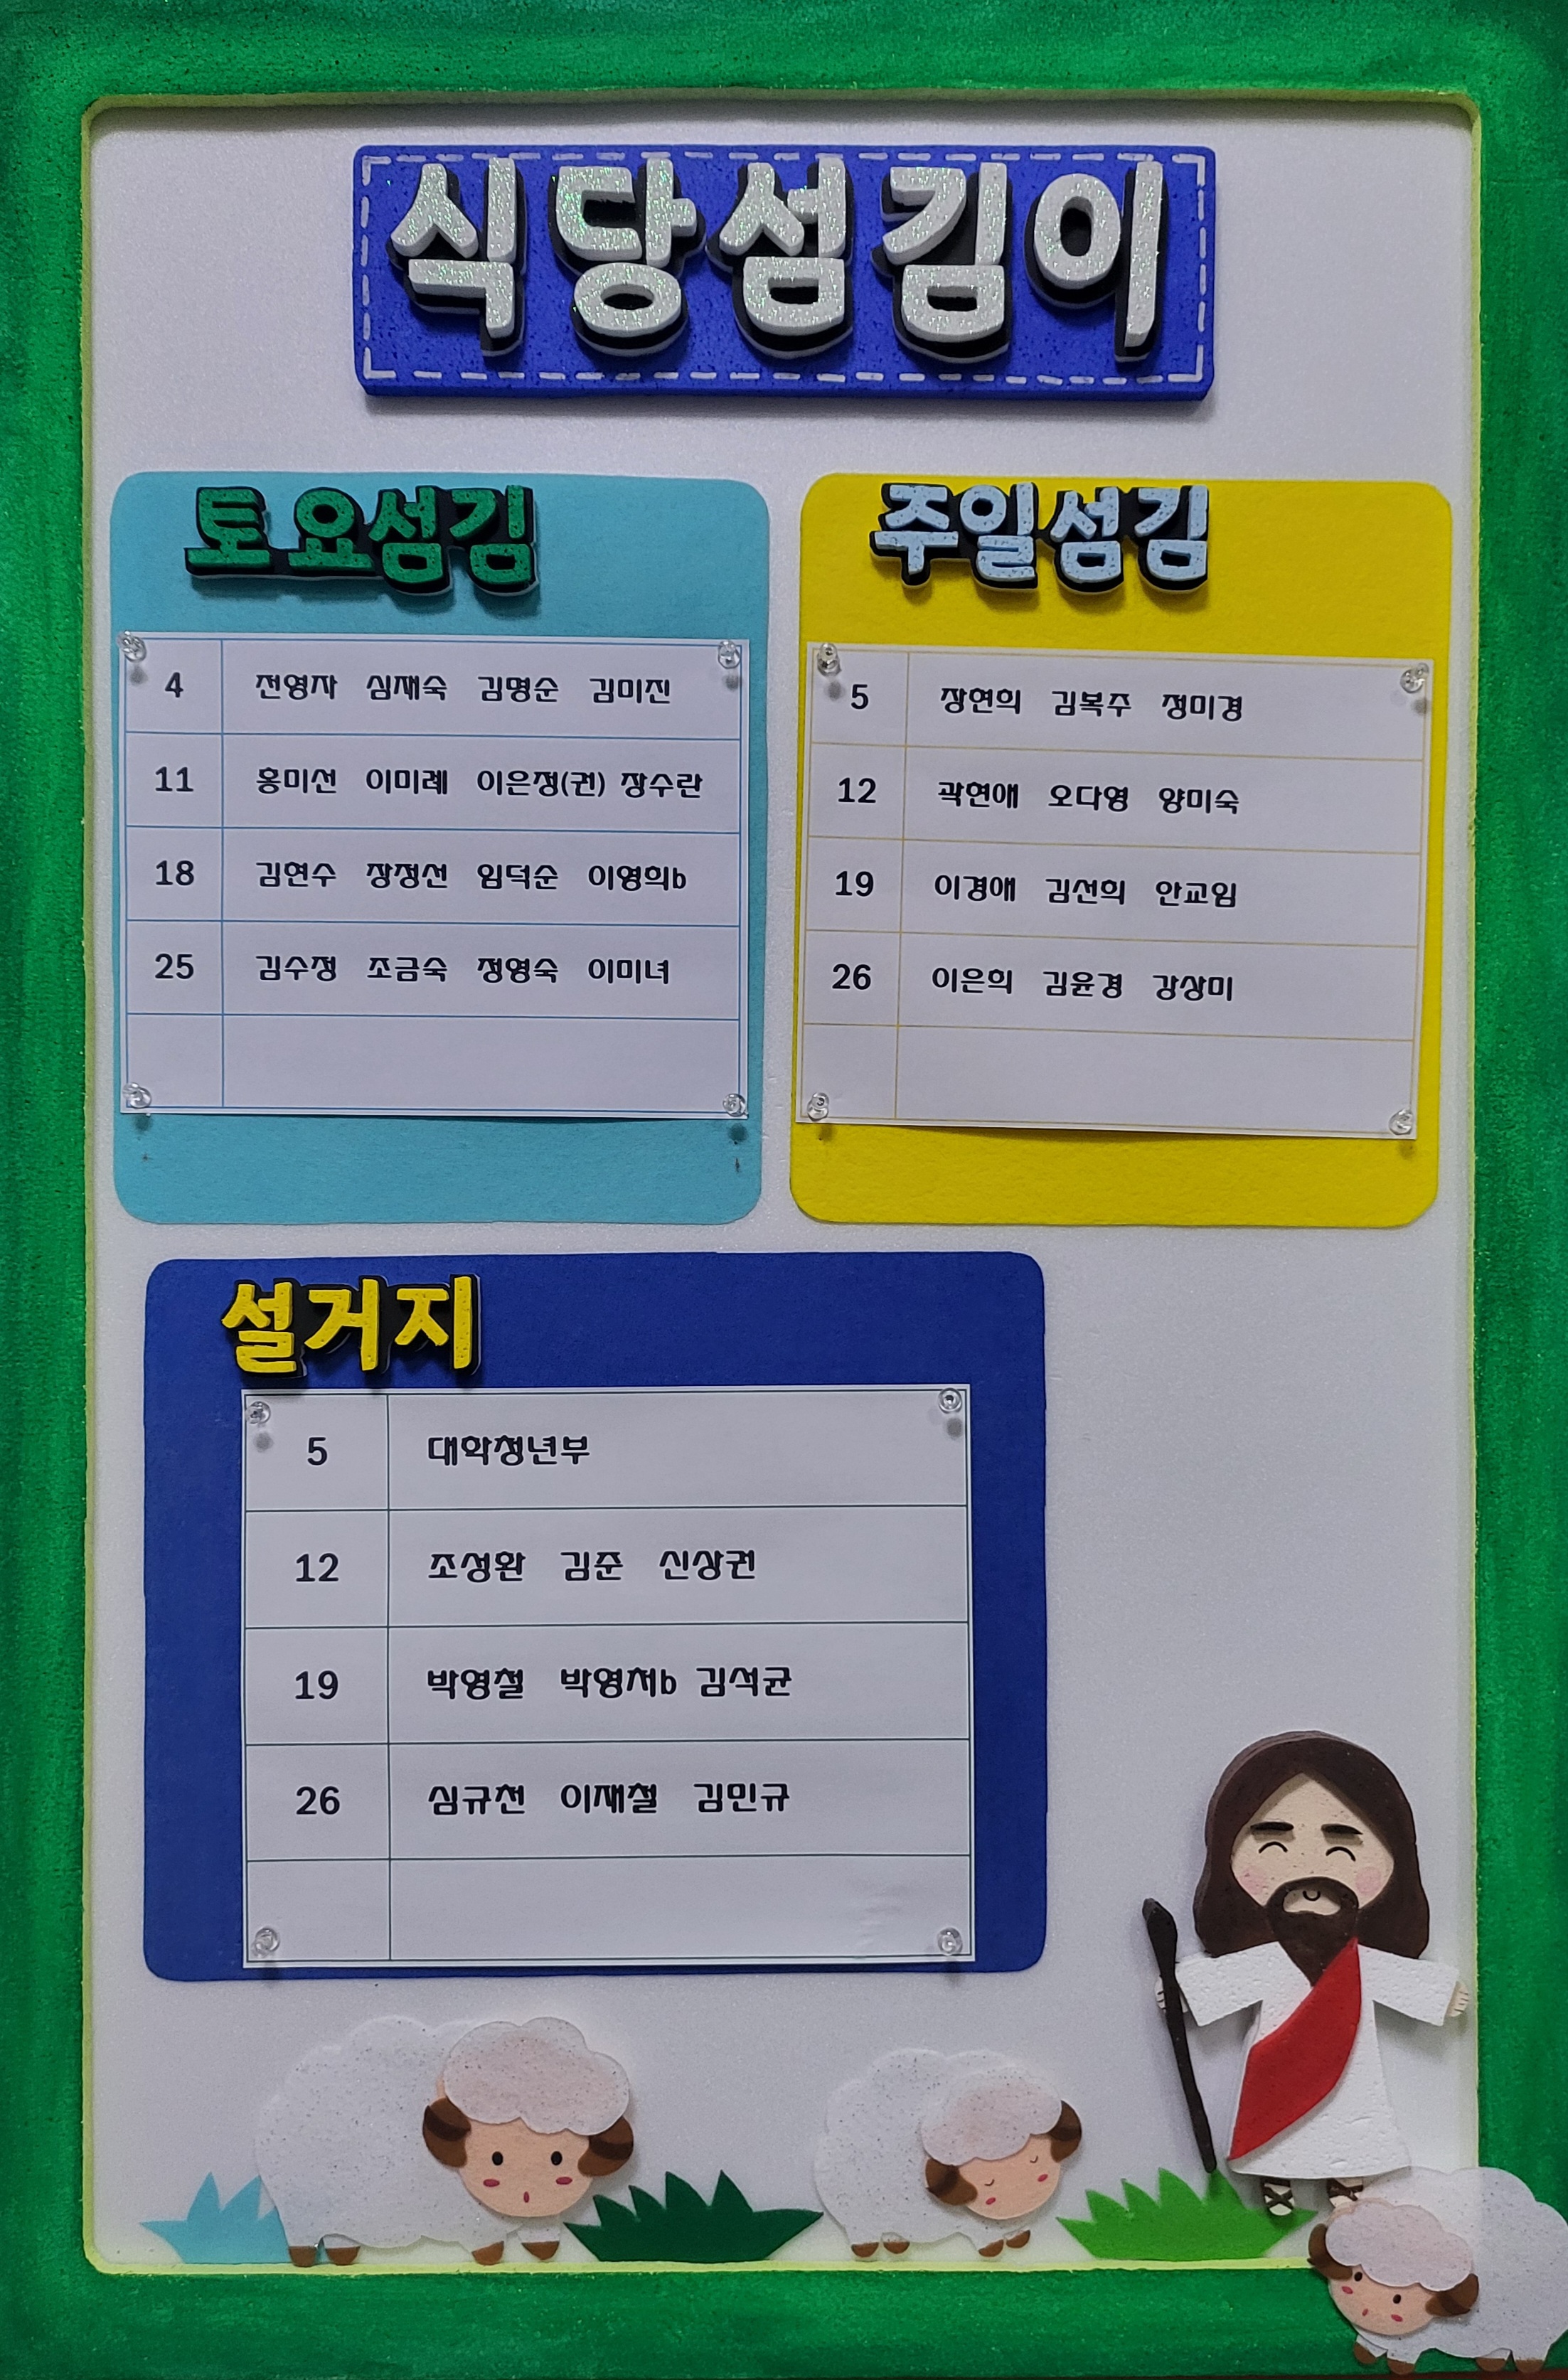 식당섬김이
토요섬김
4 전영자 심재숙 김명순 김미진
11 홍미선 이미례 이은정(권) 장수란
18 김현수 장정선 임덕순 이영희b
25 김수정 조금숙 정영숙 이미녀
주일섬김
5 장현희 김복주 정미경
12 곽현애 오다영 양미숙
19 이경애 김선희 안교임
26 이은희 김윤경 강상미
설거지
5 대학청년부
12 조성환 김준 신상권
19 박영철 박영처b 김석균
26 심규천 이재철 김민규